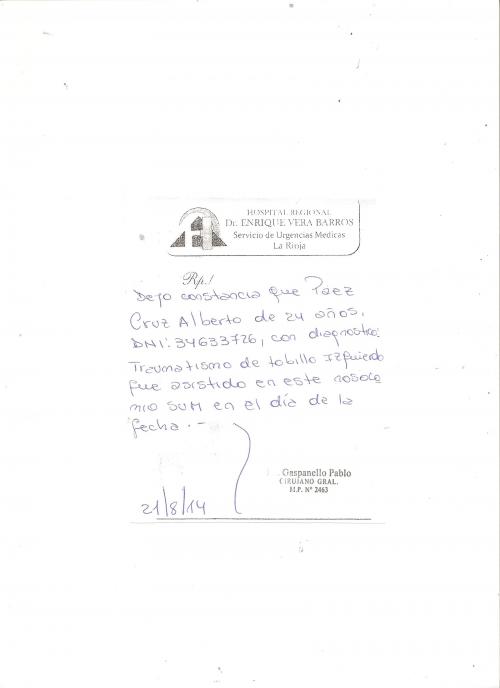 HOSPITAL REGIONAL
Dr. ENRIQUE VERA BARROS
Servicio de Urgencias Medicas
La Rioja
Rp.!
Dejo constancia que Paez
Cruz Alberto de 24 años,
DNI: 34633726, con diagnostico:
Traumatismo de tobillo Izquierdo
fue asistido en este nosoco
mio SUM en el día de la
fecha.-
Gaspanello Pablo
CIRUJANO GRAL.
M.P. Nº 2463
21/8/14